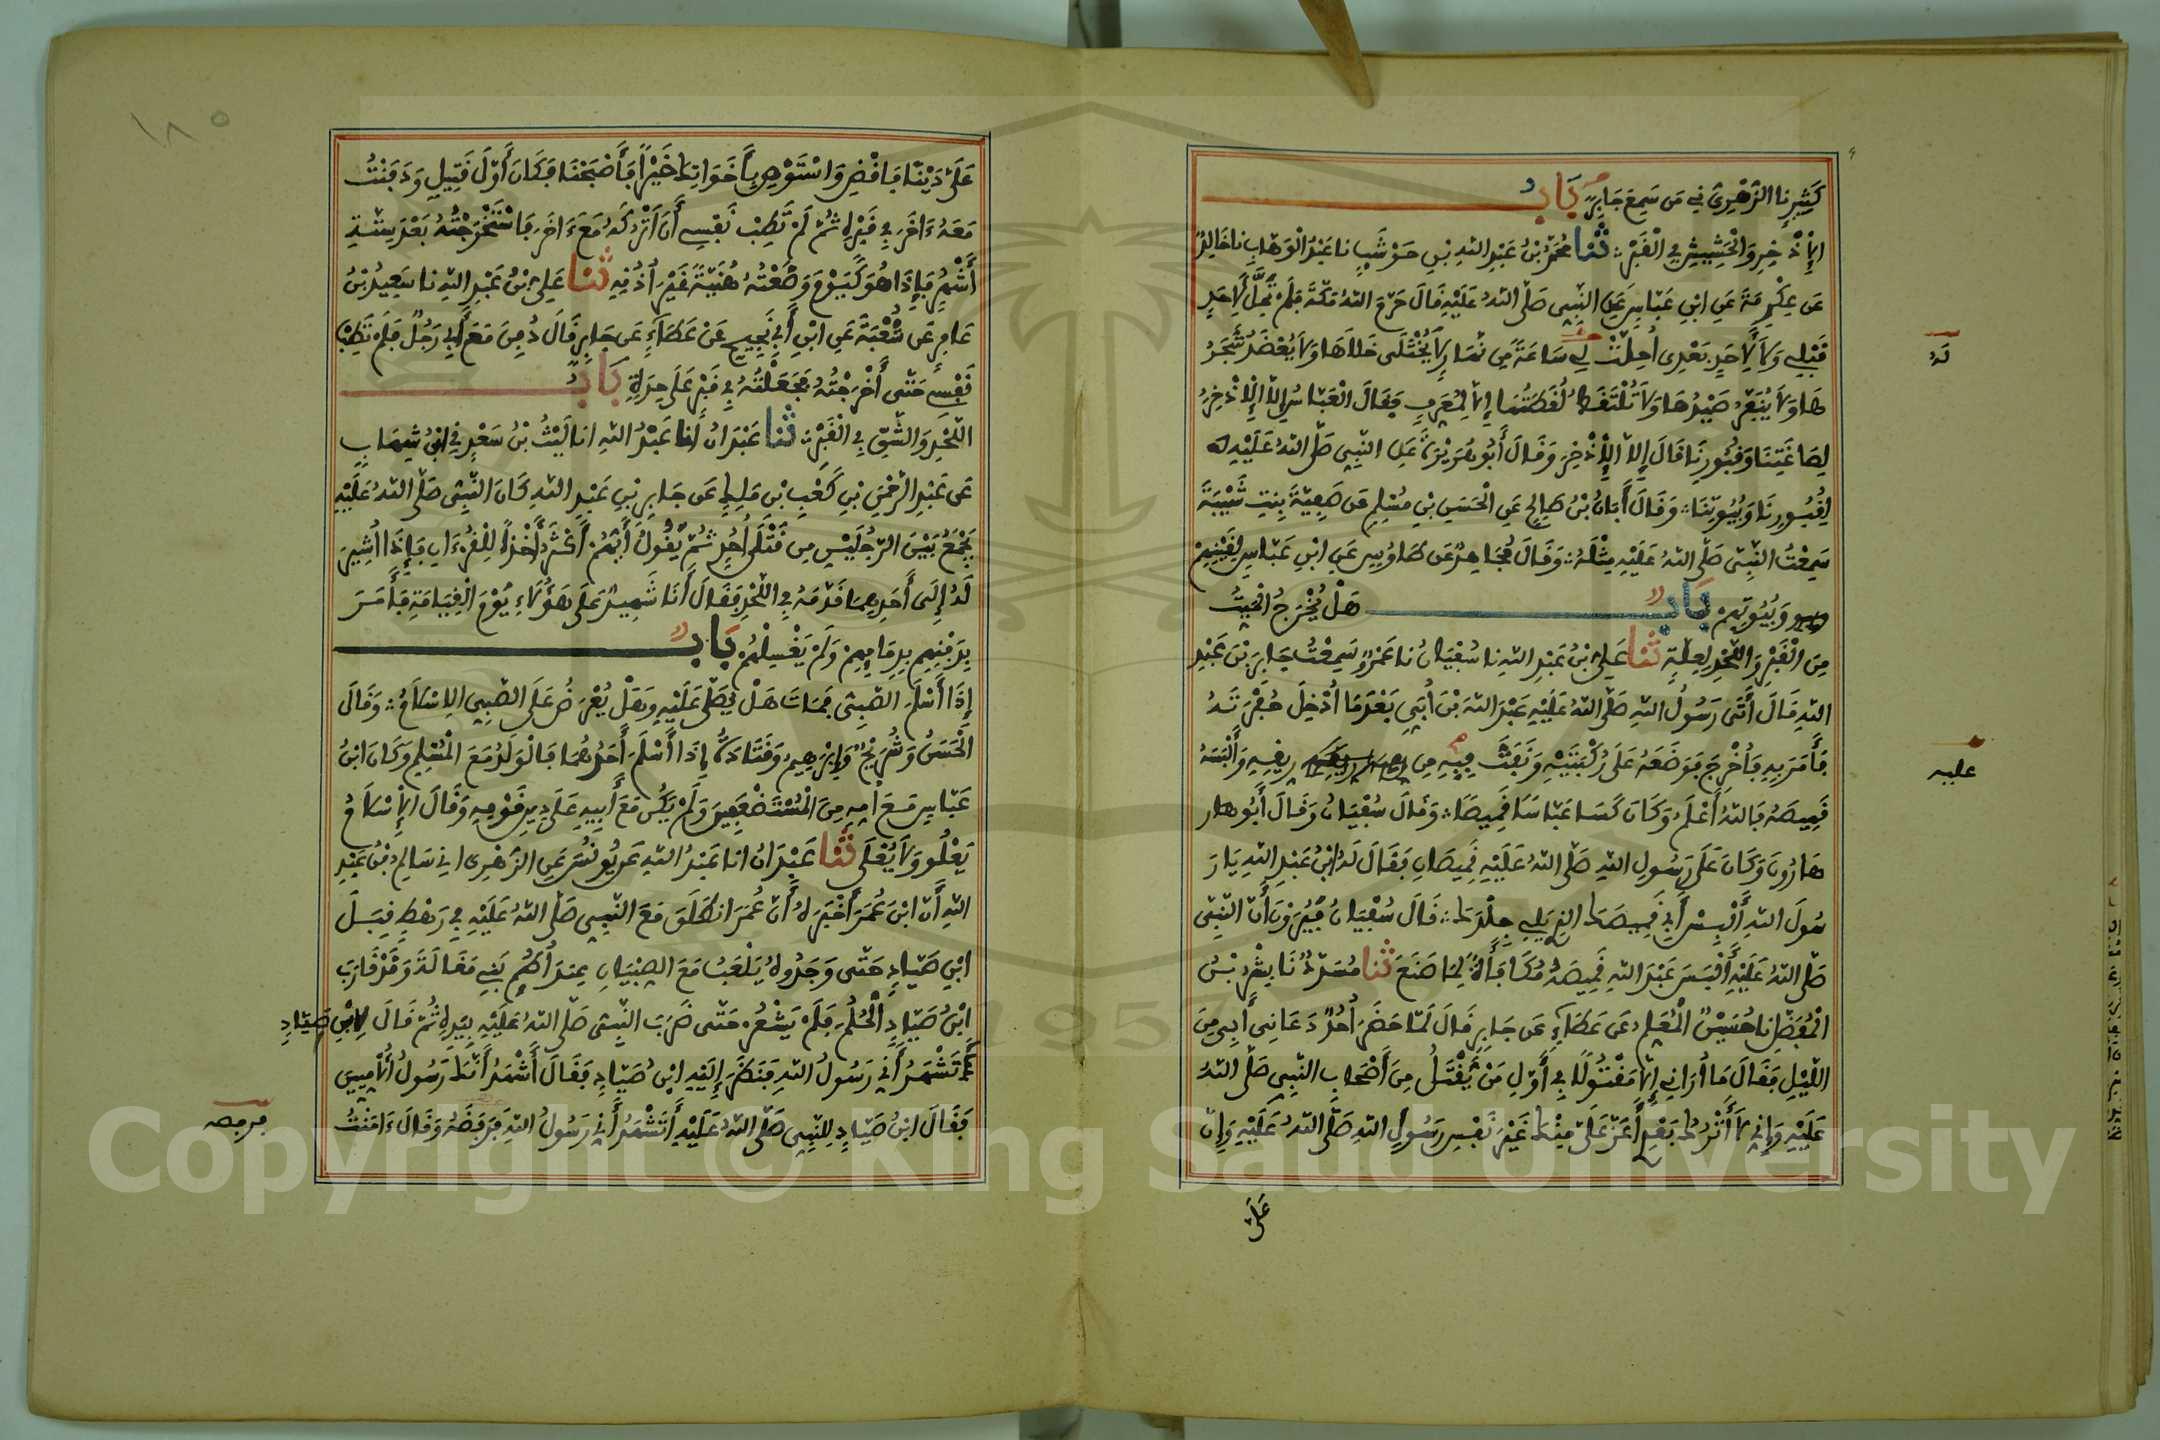 كَثِيرٍ نا الزُّهْرِيُّ ني مَن سَمِعَ جَابِرًا بَابُ
الإِذْخِرِ وَالْحَشِيشِ فِي الْقَبْرِ ثنا مُحَمَّدُ بْنُ عَبْدِ اللهِ بْنِ حَوْشَبٍ نا عَبْدُ الْوَهَّابِ نا خَالِدٌ
عَن عِكْرِمَةَ عَنِ ابْنِ عَبَّاسٍ عَنِ النَّبِيِّ صَلَّى اللهُ عَلَيْهِ قَالَ حَرَّمَ اللهُ مَكَّةَ فَلَمْ تَحِلَّ لِأَحَدٍ
قَبْلِي وَلَا لِأَحَدٍ بَعْدِي أُحِلَّتْ لِي سَاعَةً مِن نَهَارٍ لَا يُخْتَلَى خَلَاهَا وَلَا يُعْضَدُ شَجَرُ
هَا وَلَا يُنَفَّرُ صَيْدُهَا وَلَا تُلْتَقَطُ لُقَطَتُهَا إِلَّا لِمُعَرِّفٍ فَقَالَ الْعَبَّاسُ إِلَّا الإِذْخِرَ
لِصَاغَتِنَا وَقُبُورِنَا قَالَ إِلَّا الإِذْخِرَ وَقَالَ أَبُو هُرَيْرَةَ عَنِ النَّبِيِّ صَلَّى اللهُ عَلَيْهِ
لِقُبُورِنَا وَبُيُوتِنَا وَقَالَ أَبَانُ بْنُ صَالِحٍ عَنِ الْحَسَنِ بْنِ مُسْلِمٍ عَن صَفِيَّةَ بِنْتِ شَيْبَةَ
سَمِعْتُ النَّبِيَّ صَلَّى اللهُ عَلَيْهِ مِثْلَهُ وَقَالَ مُجَاهِدٌ عَن طَاوُسٍ عَنِ ابْنِ عَبَّاسٍ لِقَيْنِهِمْ
وَبُيُوتِهِمْ بَابُ هَلْ يُخْرَجُ الْمَيِّتُ
مِنَ الْقَبْرِ وَاللَّحْدِ لِعِلَّةٍ ثنا عَلِيُّ بْنُ عَبْدِ اللهِ نا سُفْيَانُ نا عَمْرٌو سَمِعْتُ جَابِرَ بْنَ عَبْدِ
اللهِ قَالَ أَتَى رَسُولُ اللهِ صَلَّى اللهُ عَلَيْهِ عَبْدَ اللهِ بْنَ أُبَيٍّ بَعْدَمَا أُدْخِلَ حُفْرَتَهُ
فَأَمَرَ بِهِ فَأُخْرِجَ فَوَضَعَهُ عَلَى رُكْبَتَيْهِ وَنَفَثَ فِيهِ مِن رِيقِهِ وَأَلْبَسَهُ
قَمِيصَهُ فَاللهُ أَعْلَمُ وَكَانَ كَسَا عَبَّاسًا قَمِيصًا وَقَالَ سُفْيَانُ وَقَالَ أَبُو هار
هَارُونَ وَكَانَ عَلَى رَسُولِ اللهِ صَلَّى اللهُ عَلَيْهِ قَمِيصَانِ فَقَالَ لَهُ ابْنُ عَبْدِ اللهِ يَا رَ
سُولَ اللهِ أَلْبِسْ أَبِي قَمِيصَكَ الذِي يَلِي جِلْدَكَ قَالَ سُفْيَانُ فَيُرَوْنَ أَنَّ النَّبِيَّ
صَلَّى اللهُ عَلَيْهِ أَلْبَسَ عَبْدَ اللهِ قَمِيصَهُ مُكَافَأَةً لِمَا صَنَعَ ثنا مُسَدَّدٌ نَا بِشْرُ بْنُ
الْمُفَضَّلِ نا حُسَيْنٌ الْمُعَلِّمُ عَن عَطَاءٍ عَن جَابِرٍ قَالَ لَمَّا حَضَرَ أُحُدٌ دَعَانِي أَبِي مِنَ
اللَّيْلِ فَقَالَ مَا أُرَانِي إِلَّا مَقْتُولًا فِي أَوَّلِ مَنْ يُقْتَلُ مِنَ أَصْحَابِ النَّبِيِّ صَلَّى اللهُ
عَلَيْهِ وَإِنِّي لَا أَتْرُكُ بَعْدِي أَعَزَّ عَلَيَّ مِنْكَ غَيْرَ نَفْسِ رَسُولِ اللهِ صَلَّى اللهُ عَلَيْهِ وَإِنَّ
عَلَيَّ
لَهُ
عليه
١٨٥
عَلَيَّ دَيْنًا فَاقْضِ وَاسْتَوْصِ بِأَخَوَاتِكَ خَيْرًا فَأَصْبَحْنَا فَكَانَ أَوَّلَ قَتِيلٍ وَدَفَنْتُ
مَعَهُ ءَاخَرَ فِي قَبْرِهِ ثُمَّ لَمْ تَطِبْ نَفْسِي أَنَ اَتْرُكَهُ مَعَ ءَاخَرَ فَاسْتَخْرَجْتُهُ بَعْدَ سِتَّةِ
أَشْهُرٍ فَإِذَا هُوَ كَيَوْمِ وَضَعْتُهُ هُنَيَّةً غَيْرَ أُذُنِهِ ثنا عَلِيُّ بْنُ عَبْدِ اللهِ نا سَعِيدُ بْنُ
عَامِرٍ عَن شُعْبَةَ عَنِ ابْنِ أَبِي نَجِيحٍ عَنْ عَطَاءٍ عَن جَابِرٍ قَالَ دُفِنَ مَعَ أَبِي رَجُلٌ فَلَمْ تَطِبْ
نَفْسِي حَتَّى أَخْرَجْتُهُ فَجَعَلْتُهُ فِي قَبْرٍ عَلَى حِدَةٍ بَابُ
اللَّحْدِ وَالشَّقِّ فِي الْقَبْرِ ثنا عَبْدَانُ أنا عَبْدُ اللهِ انا لَيْثُ بْنُ سَعْدٍ ني ابْنُ شِهَابٍ
عَن عَبْدِ الرَّحْمَنِ بْنِ كَعْبِ بْنِ مَالِكٍ عَن جَابِرِ بْنِ عَبْدِ اللهِ كَانَ النَّبِيُّ صَلَّى اللهُ عَلَيْهِ
يَجْمَعُ بَيْنَ الرَّجُلَيْنِ مِن قَتْلَى أُحُدٍ ثُمَّ يَقُولُ أَيُّهُمْ أَكْثَرُ أَخْذًا لِلْقُرْءَانِ فَإِذَا أُشِيرَ
لَهُ إِلَى أَحَدِهِمَا قَدَّمَهُ فِي اللَّحْدِ فَقَالَ أَنَا شَهِيدٌ عَلَى هَؤُلَاءِ يَوْمَ الْقِيَامَةِ فَأَمَرَ
بِدَفْنِهِم بِدِمَائِهِمْ وَلَمْ يَغْسِلْهُمْ بَابُ
إِذَا أَسْلَمَ الصَّبِيُّ فَمَاتَ هَلْ يُصَلَّى عَلَيْهِ وَهَلْ يُعْرَضُ عَلَى الصَّبِيِّ الإِسْلَامُ وَقَالَ
الْحَسَنُ وَشُرَيْحٌ وَإِبْرَهِيمُ وَقَتَادَةُ إِذَا أَسْلَمَ أَحَدُهُمَا فَالْوَلَدُ مَعَ الْمُسْلِمِ وَكَانَ ابْنُ
عَبَّاسٍ مَعَ أُمِّهِ مِنَ الْمُسْتَضْعَفِينَ وَلَمْ يَكُن مَعَ أَبِيهِ عَلَى دِينِ قَوْمِهِ وَقَالَ الإِسْلَامُ
يَعْلُو وَلَا يُعْلَى ثنا عَبْدَانُ انا عَبْدُ اللهِ عَن يُونُسَ عَنِ الزُّهْرِيِّ اني سَالِمُ بْنُ عَبْدِ
اللهِ أَنَّ ابْنَ عُمَرَ أَخْبَرَهُ أَنَّ عُمَرَ انطَلَقَ مَعَ النَّبِيِّ صَلَّى اللهُ عَلَيْهِ فِي رَهْطٍ قِبَلَ
ابْنِ صَيَّادٍ حَتَّى وَجَدُوهُ يَلْعَبُ مَعَ الصِّبْيَانِ عِنْدَ أُطُمِ بَنِي مَغَالَةَ وَقَدْ قَارَبَ
ابْنُ صَيَّادٍ الْحُلُمَ فَلَمْ يَشْعُرْ حَتَّى ضَرَبَ النَّبِيُّ صَلَّى اللهُ عَلَيْهِ بِيَدِهِ ثُمَّ قَالَ لِابْنِ صَيَّادٍ
تَشْهَدُ أَنِّي رَسُولُ اللهِ فَنَظَرَ إِلَيْهِ ابْنُ صَيَّادٍ فَقَالَ أَشْهَدُ أَنَّكَ رَسُولُ الُامِّيِّينَ
فَقَالَ ابْنُ صَيَّادٍ لِلنَّبِيِّ صَلَّى اللهُ عَلَيْهِ أَتَشْهَدُ أَنِّي رَسُولُ اللهِ فَرَفَضَهُ وَقَالَ ءَامَنْتُ
فرفصه
Copyright © King Saud University
1957